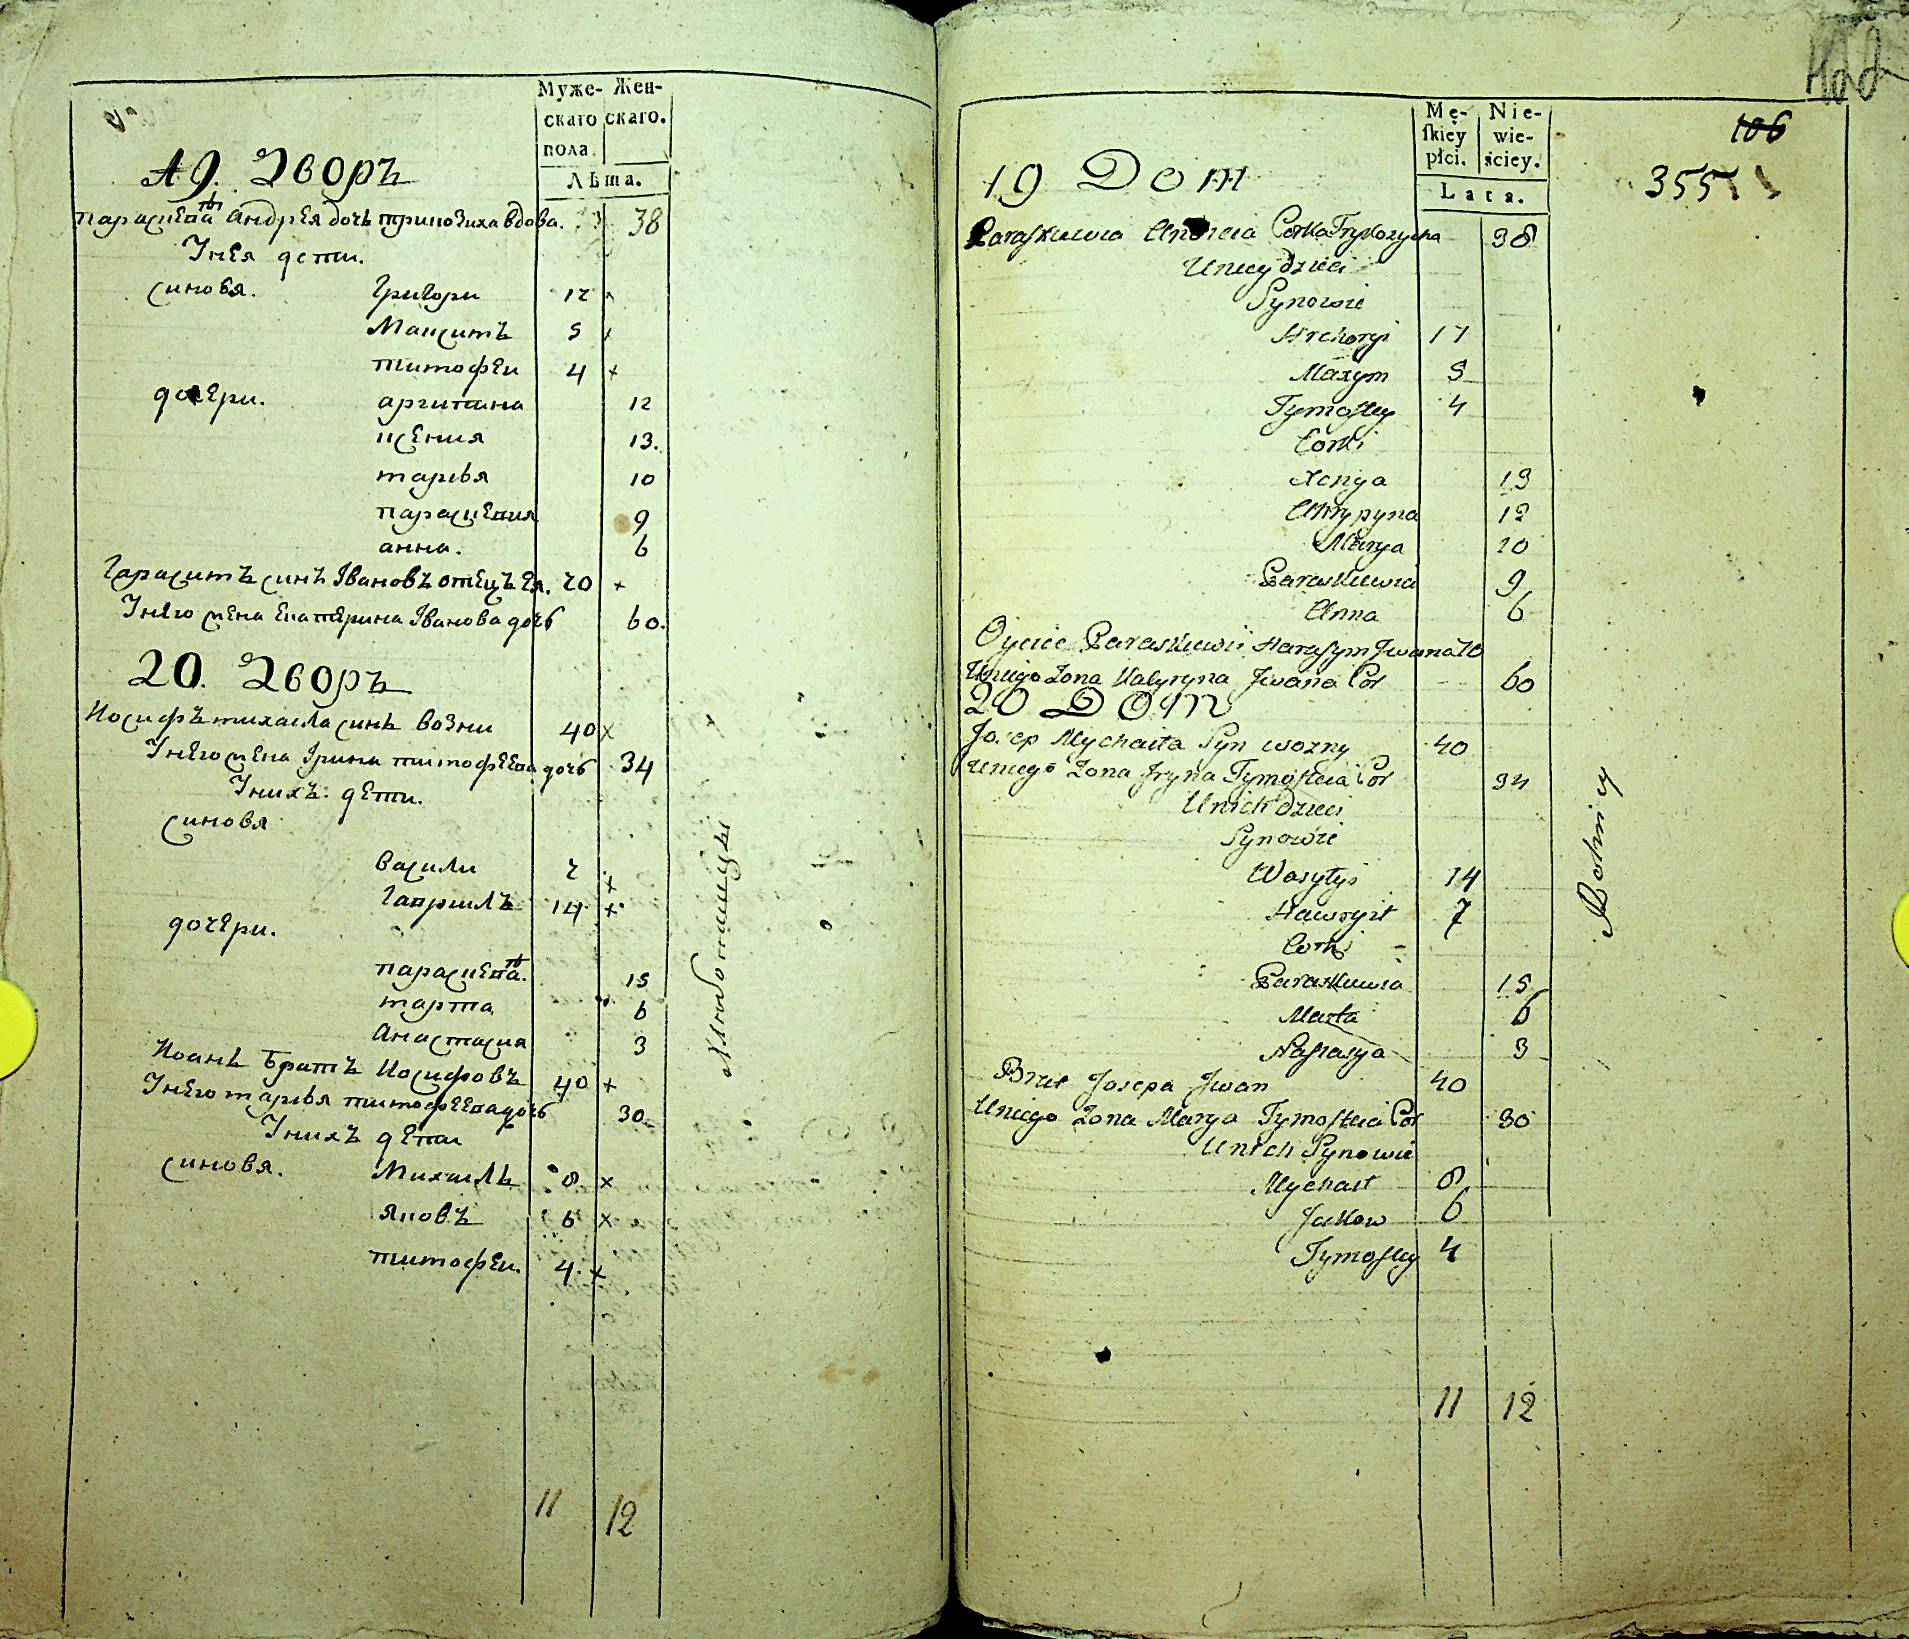 Муже- Жен-
скаго скаго.
пола.
Лѣта.
19. Дворъ
параскева андрея дочь триповиха вдова. 38
Інея дети.
синовя. Григори 12 ×
Максимъ 5 ×
тимофеи 4 ×
дочери. агрипина 12
ксения 13.
маряя 10
параскевия 9
анна. 6
Гарасимъ синъ Івановъ отецъ Ея. 70 ×
Інего жена Екатерина Іванова дочь 60.
20. Дворъ
Иосифъ михаила синъ возни 40 ×
Інего жена Ірина тимофеева дочь 34
Інихъ дети.
синовя
васили 7 ×
Гаврилъ 14 ×
дочери.
параскева. 15
марта 6
Анастасия 3
Иоанъ братъ Иосифовъ 40 ×
Інего маряя тимофеева дочь 30
Інихъ дети
синовя. Михаилъ 8 ×
яковъ 6 ×
тимофеи. 4. ×
хлибопашцы
11 12
Mę- Nie-
skiey wie-
płci. sciey.
Lata.
106
355
19 Dom
Paraskiewia Andreia Corka Trykozycha 38
Uniey dzieci
Synowie
Hrehoryi 17
Maxym 5
Tymoftey 4
Corki
Xenya 13
Ahrypyna 12
Marya 10
Paraskiewia 9
Anna 6
Oyciec Paraskiewii Harasym Iwana 70
Uniego Zona Katyryna Iwana Cor 60
20 Dom
Josep Mychaiła Syn wozny 40
Uniego Zona Iryna Tymofteia Cor 34
Unich dzieci
Synowie
Wasyłyi 14
Hawryił 7
Corki
Paraskiewia 15
Marta 6
Nastasya 3
Brat Josepa Iwan 40
Uniego Zona Marya Tymofteia Cor 30
Unich Synowie
Mychaił 8
Jakow 6
Tymoftey 4
Rolnicy
11 12